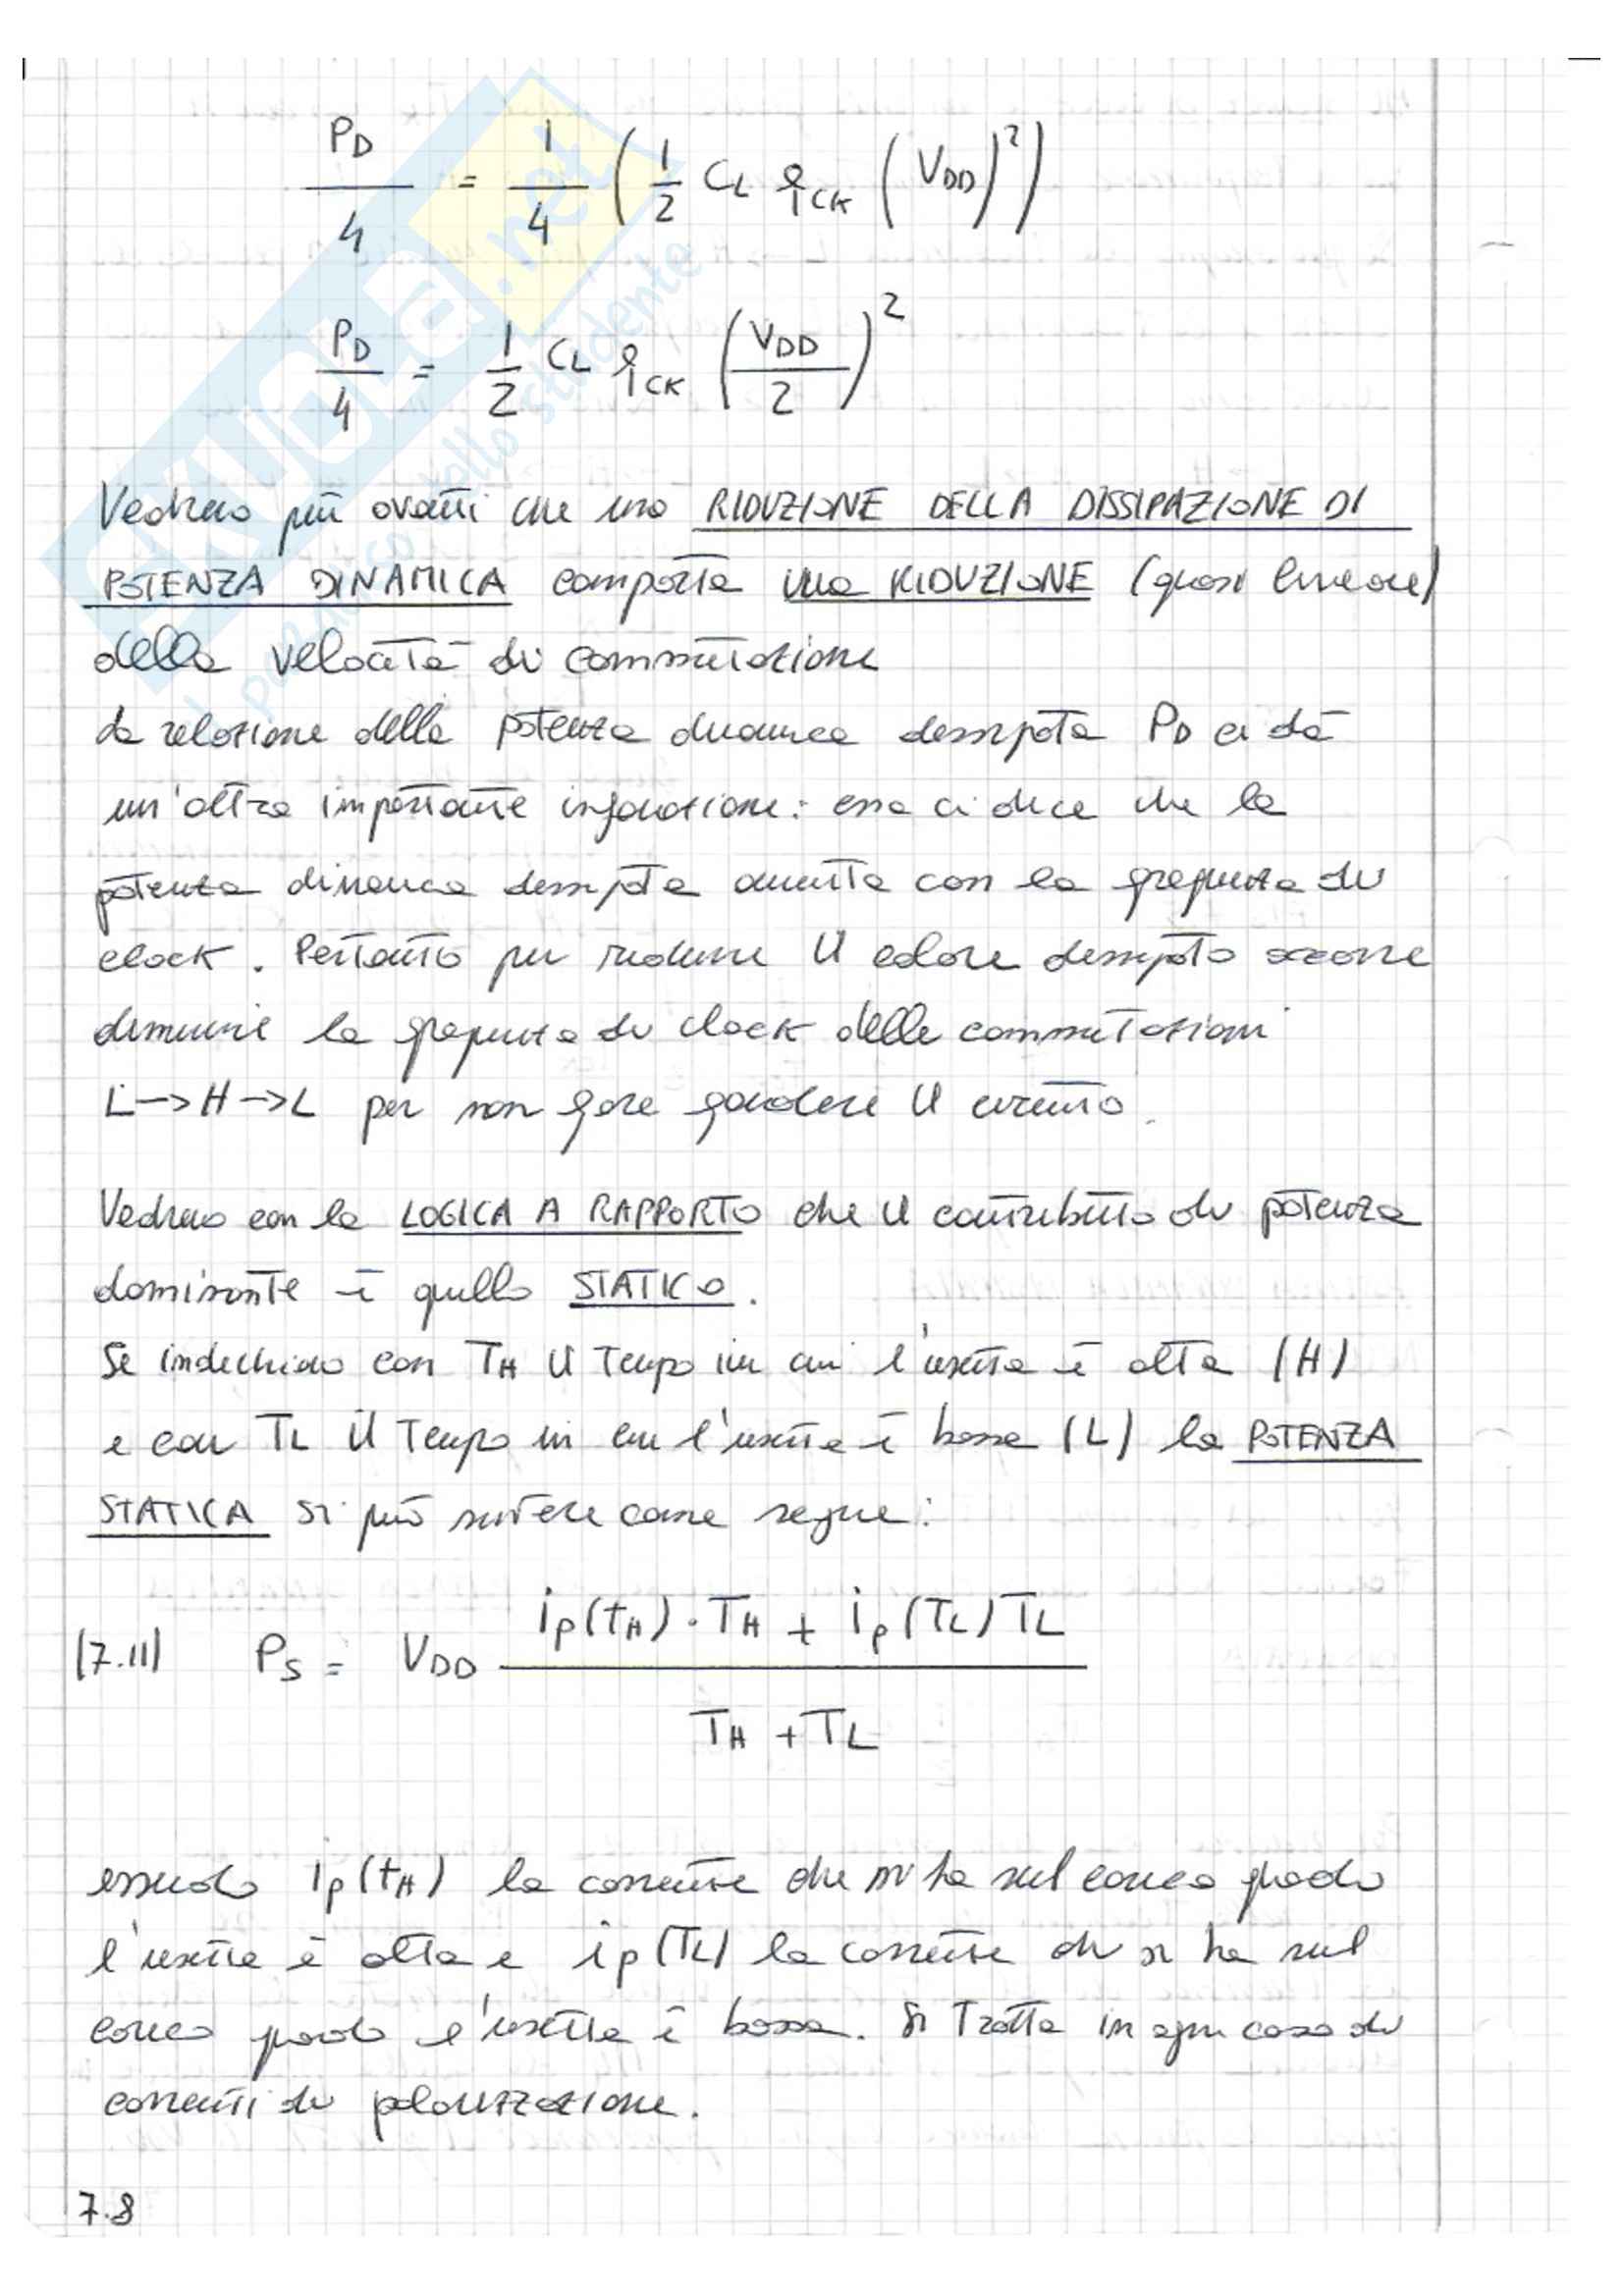 P_D / 4 = 1/4 ( 1/2 C_L f_CK ( V_DD )² )
P_D / 4 = 1/2 C_L f_CK ( V_DD / 2 )²
Vedremo più avanti che una RIDUZIONE DELLA DISSIPAZIONE DI
POTENZA DINAMICA comporta una RIDUZIONE (quasi lineare)
della velocità di commutazione
La relazione della potenza dinamica dissipata P_D ci dà
un'altra importante informazione: essa ci dice che la
potenza dinamica dissipata aumenta con la frequenza di
clock. Pertanto per ridurre il calore dissipato occorre
diminuire la frequenza di clock delle commutazioni
L→H→L per non fare fondere il circuito.
Vedremo con la LOGICA A RAPPORTO che il contributo di potenza
dominante è quello STATICO.
Se indichiamo con T_H il tempo in cui l'uscita è alta (H)
e con T_L il tempo in cui l'uscita è bassa (L) la POTENZA
STATICA si può scrivere come segue:
(7.11) P_S = V_DD ( i_P(t_H) · T_H + i_P(T_L) T_L ) / ( T_H + T_L )
essendo i_P(t_H) la corrente che si ha sul carico quando
l'uscita è alta e i_P(T_L) la corrente che si ha sul
carico quando l'uscita è bassa. Si tratta in ogni caso di
correnti di polarizzazione.
7.8
SKUOLA.net